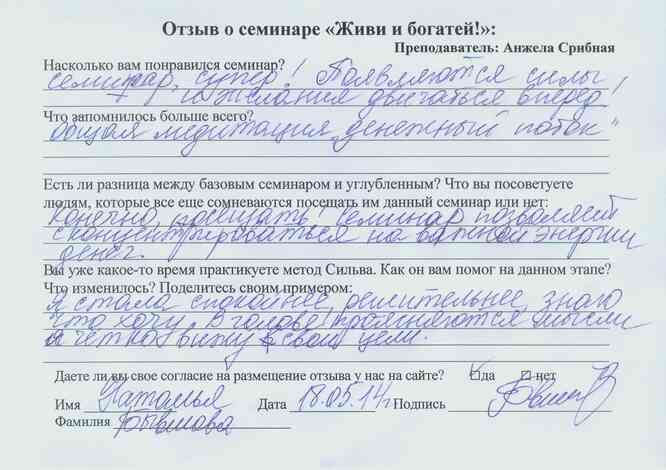 Отзыв о семинаре «Живи и богатей!»:
Преподаватель: Анжела Срибная
Насколько вам понравился семинар?
семинар, супер! Появляются силы
и желания двигаться вперед!
Что запомнилось больше всего?
общая медитация „денежный поток"
Есть ли разница между базовым семинаром и углубленным? Что вы посоветуете
людям, которые все еще сомневаются посещать им данный семинар или нет:
Конечно, посещать! Семинар позволяет
сконцентрироваться на важной энергии
денег.
Вы уже какое-то время практикуете метод Сильва. Как он вам помог на данном этапе?
Что изменилось? Поделитесь своим примером:
Я стала спокойнее, решительнее, знаю
что хочу. В голове проясняются мысли
и четко вижу свои цели.
Даете ли вы свое согласие на размещение отзыва у нас на сайте? да нет
Имя Наталья Дата 18.05.14г Подпись
Фамилия